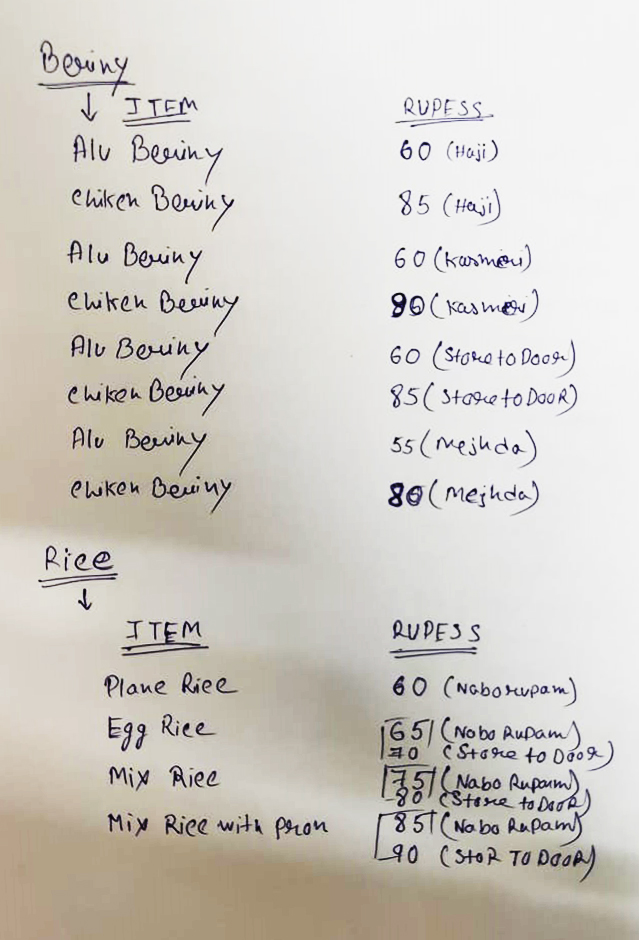 Beriny
↓ ITEM RUPESS
Alu Beriny 60 (Haji)
Chiken Beriny 85 (Haji)
Alu Beriny 60 (Kasmeri)
Chiken Beriny (Kasmeri)
Alu Beriny 60 (Store to Door)
Chiken Beriny 85 (Store to DooR)
Alu Beriny 55 (Mejhda)
Chiken Beriny (Mejhda)
Rice
↓
ITEM RUPESS
Plane Rice 60 (Naborupam)
Egg Rice 65 (Nabo Rupam)
70 (Store to Door)
Mix Rice 75 (Nabo Rupam)
80 (Store to DooR)
Mix Rice with pron 85 (Nabo Rupam)
90 (StoR TO DooR)